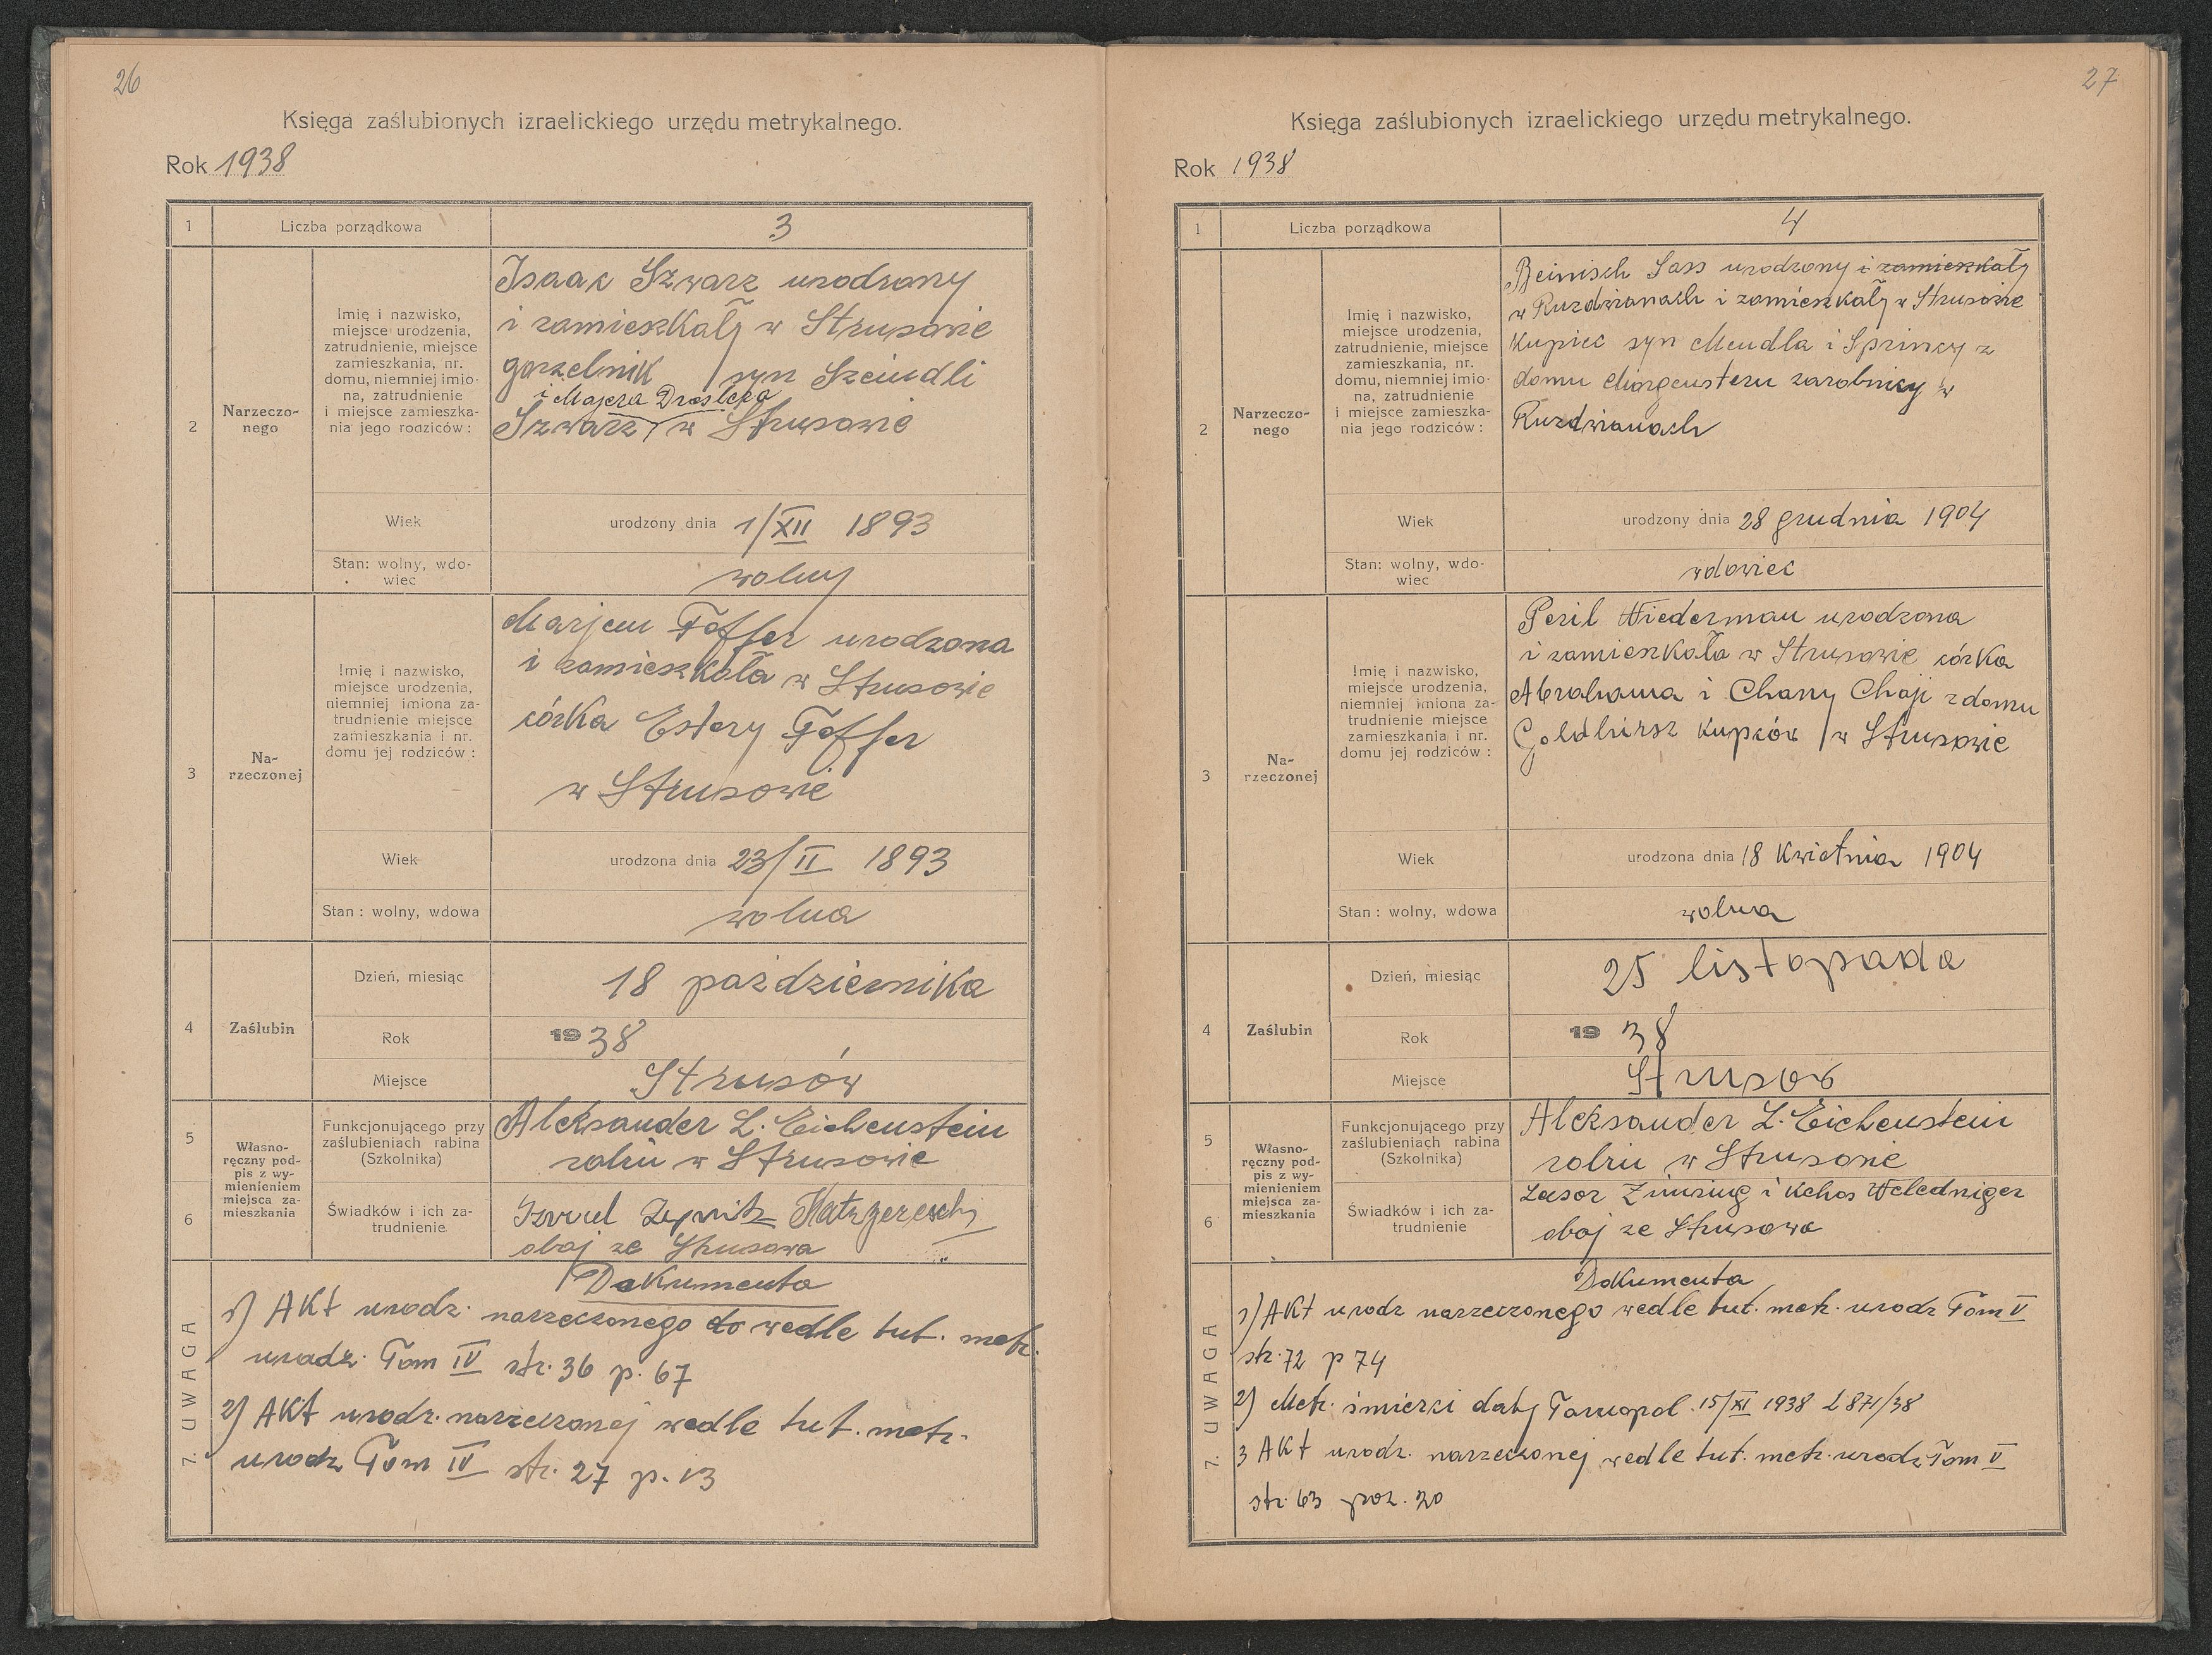 26
Księga zaślubionych izraelickiego urzędu metrykalnego.
Rok 1938
1
Liczba porządkowa
3
2
Narzeczo-
nego
Imię i nazwisko,
miejsce urodzenia,
zatrudnienie, miejsce
zamieszkania, nr.
domu, niemniej imio-
na, zatrudnienie
i miejsce zamieszka-
nia jego rodziców:
Isaak Szwarz urodzony
i zamieszkały w Strusowie
gorzelnik / syn Szeindli
i Majera Droslera
Szwarz w Strusowie
Wiek
urodzony dnia 1/XII 1893
Stan: wolny, wdo-
wiec
wolny
3
Na-
rzeczonej
Imię i nazwisko,
miejsce urodzenia,
niemniej imiona za-
trudnienie miejsce
zamieszkania i nr.
domu jej rodziców:
Marjem Toffer urodzona
i zamieszkała w Strusowie
córka Estery Toffer
w Strusowie
Wiek
urodzona dnia 23/II 1893
Stan: wolny, wdowa
wolna
4
Zaślubin
Dzień, miesiąc
18 październiKa
Rok
1938
Miejsce
Strusów
5
6
Własno-
ręczny pod-
pis z wy-
mienieniem
miejsca za-
mieszkania
Funkcjonującego przy
zaślubieniach rabina
(Szkolnika)
Aleksander L. Eichenstein
rabin w Strusowie
Świadków i ich za-
trudnienie
obaj ze Strusowa
7. UWAGA
Dokumenta
1) AKt urodz. narzeczonego do wedle tut. metr.
urodz. Tom IV str. 36 p. 67
2) AKt urodz. narzeczonej wedle tut. metr.
urodz Tom IV str. 27 p. 13
27
Księga zaślubionych izraelickiego urzędu metrykalnego.
Rok 1938
1
Liczba porządkowa
4
2
Narzeczo-
nego
Imię i nazwisko,
miejsce urodzenia,
zatrudnienie, miejsce
zamieszkania, nr.
domu, niemniej imio-
na, zatrudnienie
i miejsce zamieszka-
nia jego rodziców:
Beinisch Sass urodzony i zamieszkały
w Ruzdwianach i zamieszkały w Strusowie
Kupiec syn Mendla i Sprincy z
domu Morgenstern zarobnicy w
Ruzdwianach
Wiek
urodzony dnia 28 grudnia 1904
Stan: wolny, wdo-
wiec
wdowiec
3
Na-
rzeczonej
Imię i nazwisko,
miejsce urodzenia,
niemniej imiona za-
trudnienie miejsce
zamieszkania i nr.
domu jej rodziców:
Peril Wiederman urodzona
i zamieszkała w Strusowie córKa
Abrahama i Chany Chaji z domu
Goldhirsz kupców / w Strusowie
Wiek
urodzona dnia 18 Kwietnia 1904
Stan: wolny, wdowa
wolna
4
Zaślubin
Dzień, miesiąc
25 listopada
Rok
1938
Miejsce
Strusow
5
6
Własno-
ręczny pod-
pis z wy-
mienieniem
miejsca za-
mieszkania
Funkcjonującego przy
zaślubieniach rabina
(Szkolnika)
Aleksander L. Eichenstein
rabin w Strusowie
Świadków i ich za-
trudnienie
i Weledniger
obaj ze Strusowa
7. UWAGA
Dokumenta
1) AKt urodz narzeczonego wedle tut. metr. urodz Tom V
str. 72 p 74
2) Metr. śmierci daty Tarnopol 15/XI 1938 L 871/38
3 AKt urodz. narzeczonej wedle tut. metr. urodz Tom V
str. 63 poz. 20